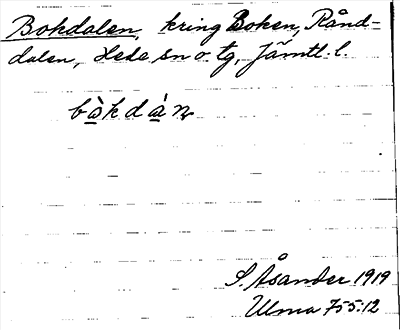 Bokdalen, kring Boken, Rånd-
dalen, Hede sn o. tg, Jämtl. l.
bòkdàn
S. Åsander 1919
Ulma 755:12